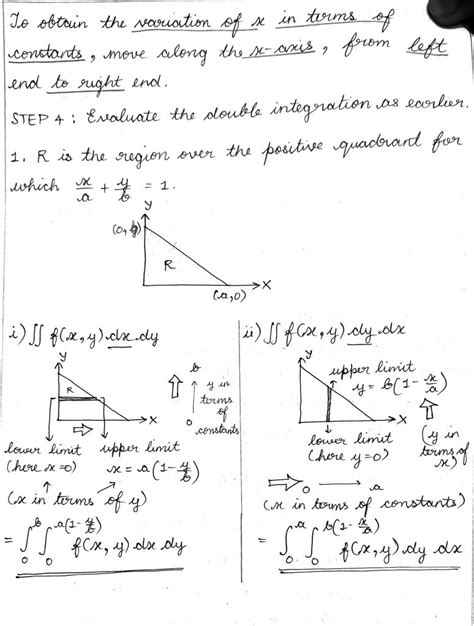 To obtain the variation of x in terms of
constants, move along the x-axis, from left
end to right end.
STEP 4 : Evaluate the double integration as earlier.
1. R is the region over the positive quadrant for
which x/a + y/b = 1.
y
(0, b)
R
x
(a, 0)
i) ∬ f(x, y) dx dy
y
R
x
b
y in
terms
of
constants
0
lower limit
(here x=0)
upper limit
x = a(1 - y/b)
(x in terms of y)
= ∫₀^b ∫₀^a(1-y/b) f(x, y) dx dy
ii) ∬ f(x, y) dy dx
y
upper limit
y = b(1 - x/a)
x
lower limit
(here y=0)
(y in
terms of
x)
0 → a
(x in terms of constants)
= ∫₀^a ∫₀^b(1-x/a) f(x, y) dy dx